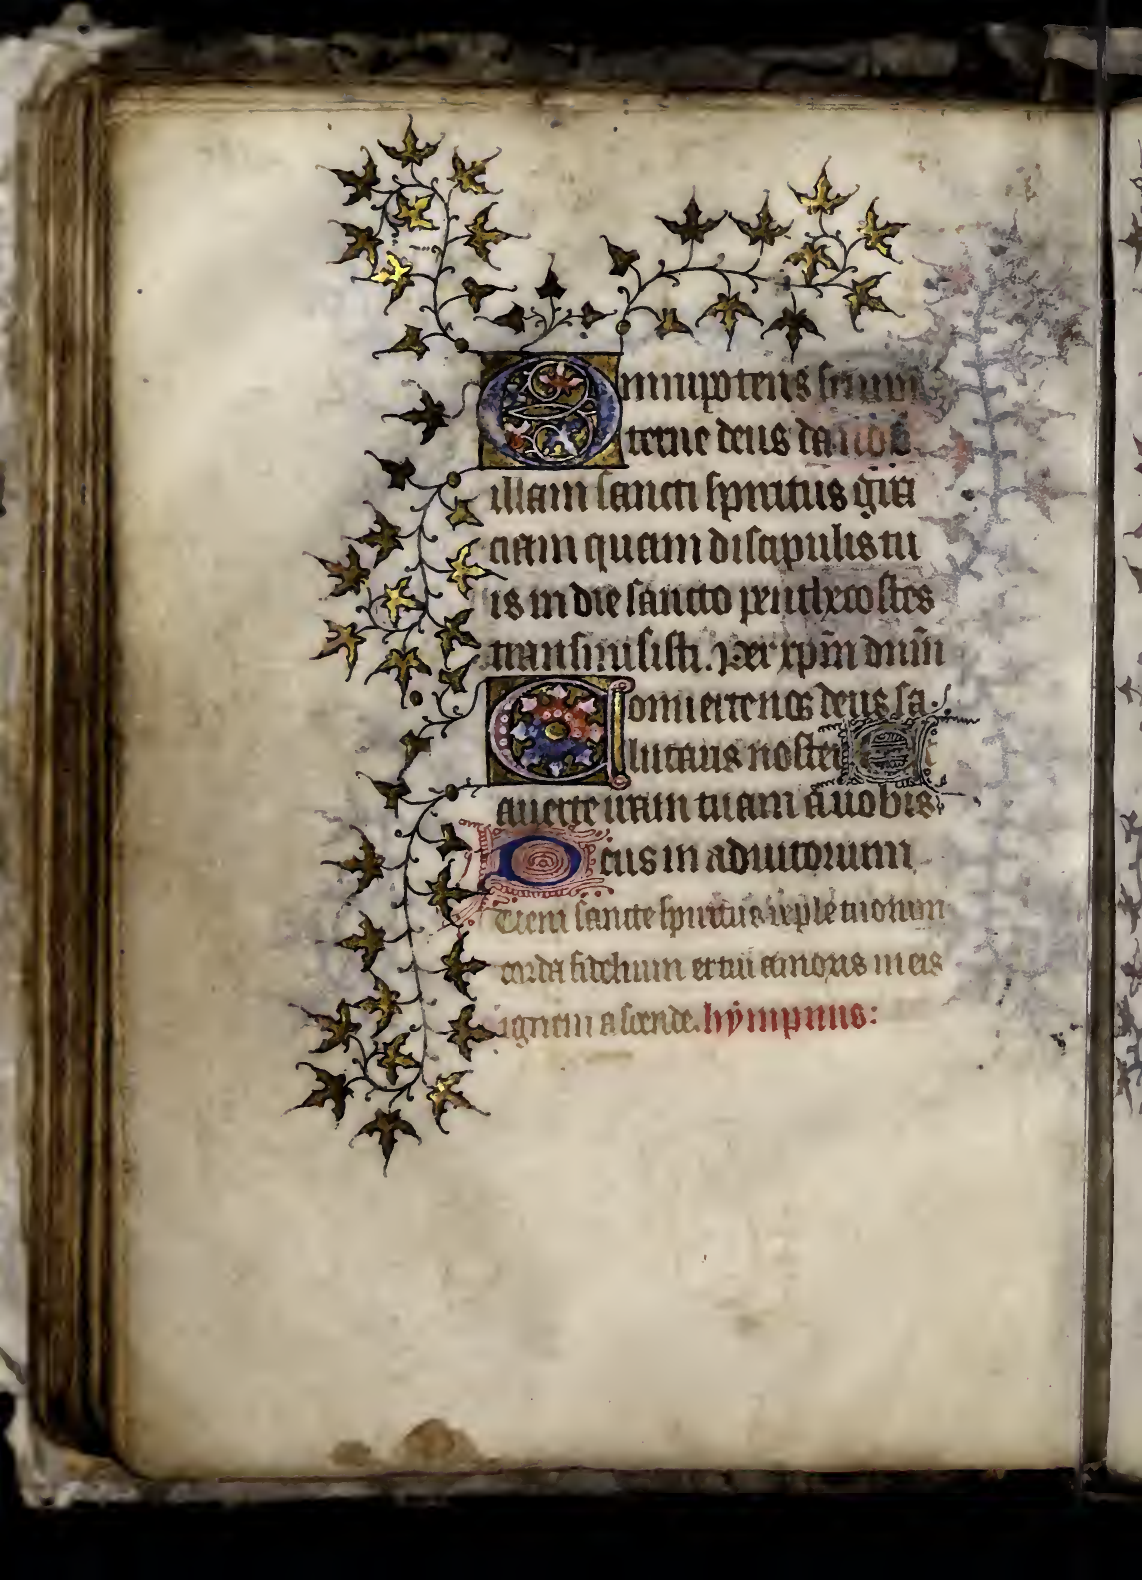 Omnipotens sempi
terne deus da nob
illam sancti spiritus gra
ciam quam discipulis tu
is in die sancto penthecostes
transmisisti. Per xpm dnm
Conuerte nos deus sa
lutaris noster Et
auerte iram tuam a nobis
Deus in adiutorium
Veni sancte spiritus reple tuorum
corda fidelium et tui amoris in eis
ignem ascende. hympnus: